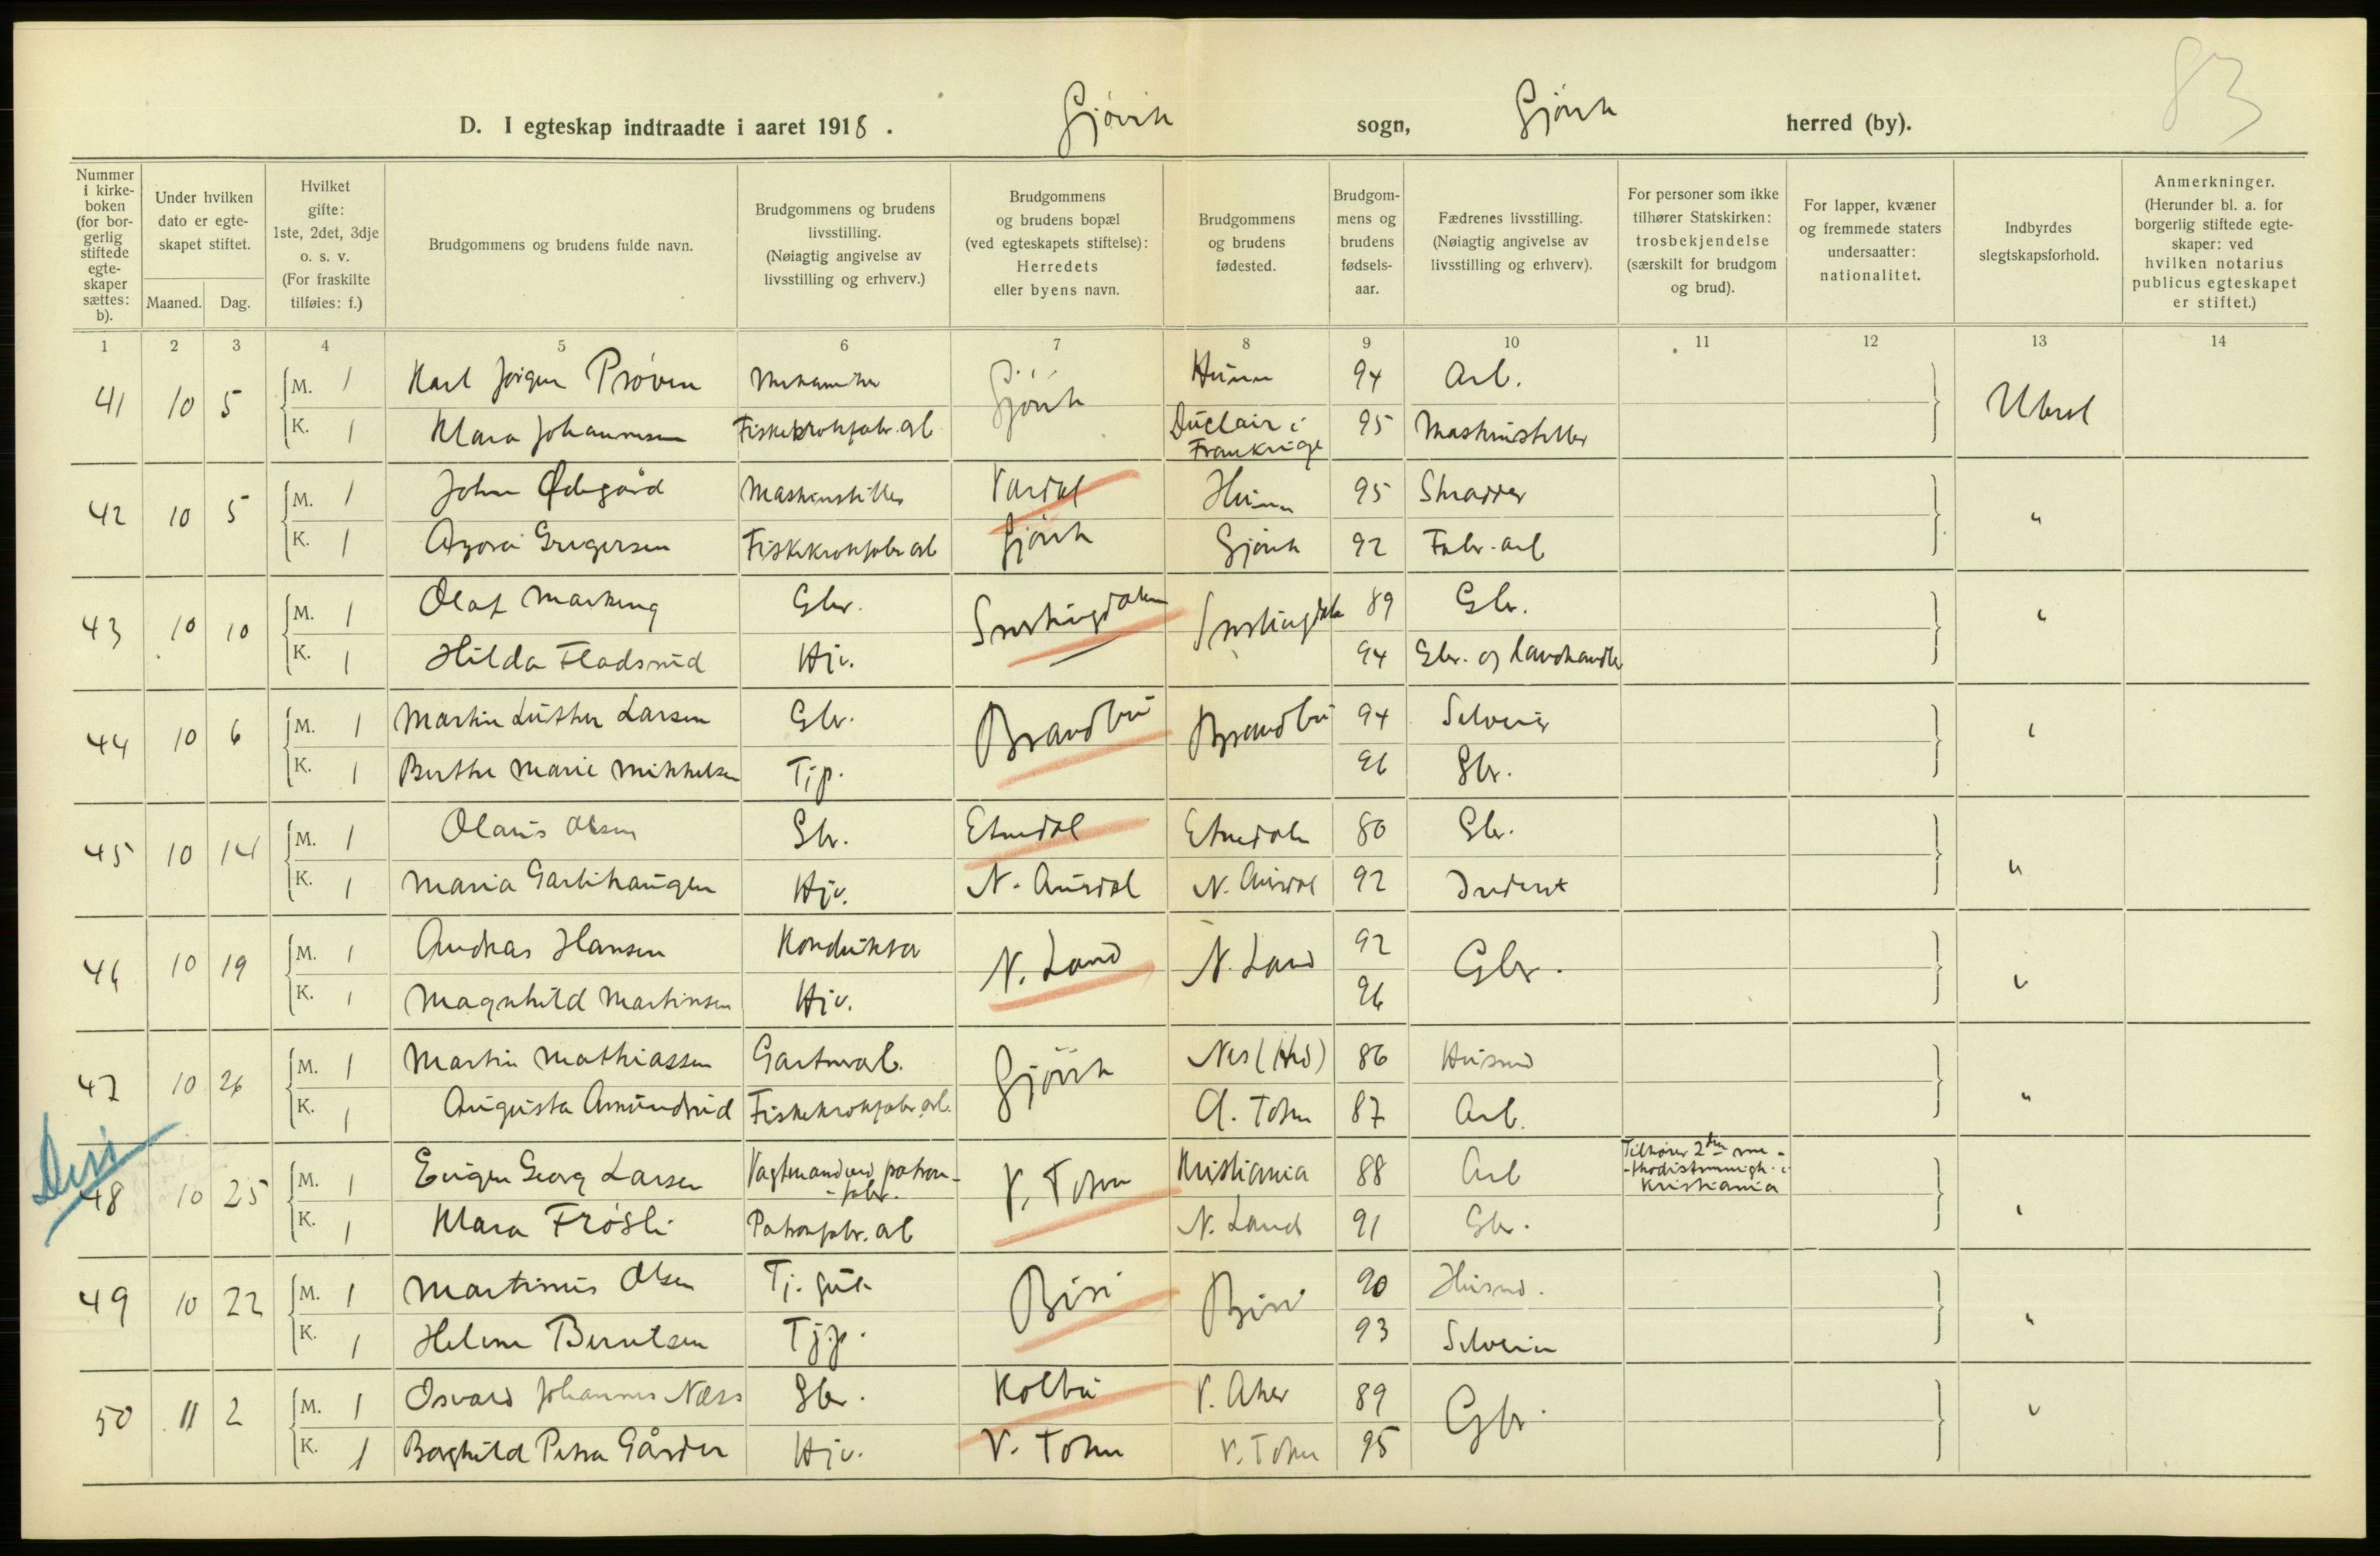 83
D. I egteskap indtraadte i aaret 1918. Gjøvik sogn, Gjøvik herred (by).
Nummer i kirke-boken (for bor-gerlig stiftede egte-skaper sættes: b).
Under hvilken dato er egte-skapet stiftet.
Maaned. Dag.
Hvilket gifte: 1ste, 2det, 3dje o. s. v. (For fraskilte tilføies: f.)
Brudgommens og brudens fulde navn.
Brudgommens og brudens livsstilling. (Nøiagtig angivelse av livsstilling og erhverv.)
Brudgommens og brudens bopæl (ved egteskapets stiftelse): Herredets eller byens navn.
Brudgommens og brudens fødested.
Brudgom-mens og brudens fødsels-aar.
Fædrenes livsstilling. (Nøiagtig angivelse av livsstilling og erhverv).
For personer som ikke tilhører Statskirken: trosbekjendelse (særskilt for brudgom og brud).
For lapper, kvæner og fremmede staters undersaatter: nationalitet.
Indbyrdes slegtskapsforhold.
Anmerkninger. (Herunder bl. a. for borgerlig stiftede egte-skaper: ved hvilken notarius publicus egteskapet er stiftet.)
1 2 3 4 5 6 7 8 9 10 11 12 13 14
41 10 5 M. 1 Karl Jørgen Prøven Mekaniker Gjøvik Hunn 94 Arb. Ubesl
K. 1 Klara Johannesen Fiskekrokfabr. arb Duclair i Frankrige 95 Maskinstiller
42 10 5 M. 1 John Ødegård Maskinstiller Vardal Hunn 95 Skrædder "
K. 1 Agora Gregersen Fiskekrokfabr arb Gjøvik Gjøvik 92 Fabr. arb
43 10 10 M. 1 Olaf Markeng Gbr. Snertingdalen Snertingdalen 89 Gbr. "
K. 1 Hilda Fladsrud Hjv. 94 Gbr. og landhandler
44 10 6 M. 1 Martin Luther Larsen Gbr. Brandbu Brandbu 94 Selveier "
K. 1 Berthe Marie Mikkelsen Tjp. 96 Gbr.
45 10 14 M. 1 Olaus Olsen Gbr. Etnedal Etnedalen 80 Gbr. "
K. 1 Maria Garlihaugen Hjv. N. Aurdal N. Aurdal 92 Inderst
46 10 19 M. 1 Andreas Hansen Konduktør N. Land N. Land 92 Gbr. "
K. 1 Magnhild Martinsen Hjv. 96
47 10 26 M. 1 Martin Mathiassen Gartnerarb. Gjøvik Nes (Hed) 86 Husmd "
K. 1 Augusta Amundrud Fiskekrokfabr. arb. Ø. Toten 87 Arb.
48 10 25 M. 1 Eugen Georg Larsen Vagtmand ved patron-fabr. V. Toten Kristiania 88 Arb Tilhører 2den me-thodistmenigh. i Kristiania "
K. 1 Klara Frøsli Patronfabr. arb N. Land 91 Gbr.
49 10 22 M. 1 Martinus Olsen Tj. gut Biri Biri 90 Husmd. "
K. 1 Helene Berntsen Tjp. 93 Selveier
50 11 2 M. 1 Osvald Johannes Næss Gbr. Kolbu V. Aker 89 Gbr. "
K. 1 Borghild Petra Gårder Hjv. V. Toten V. Toten 95